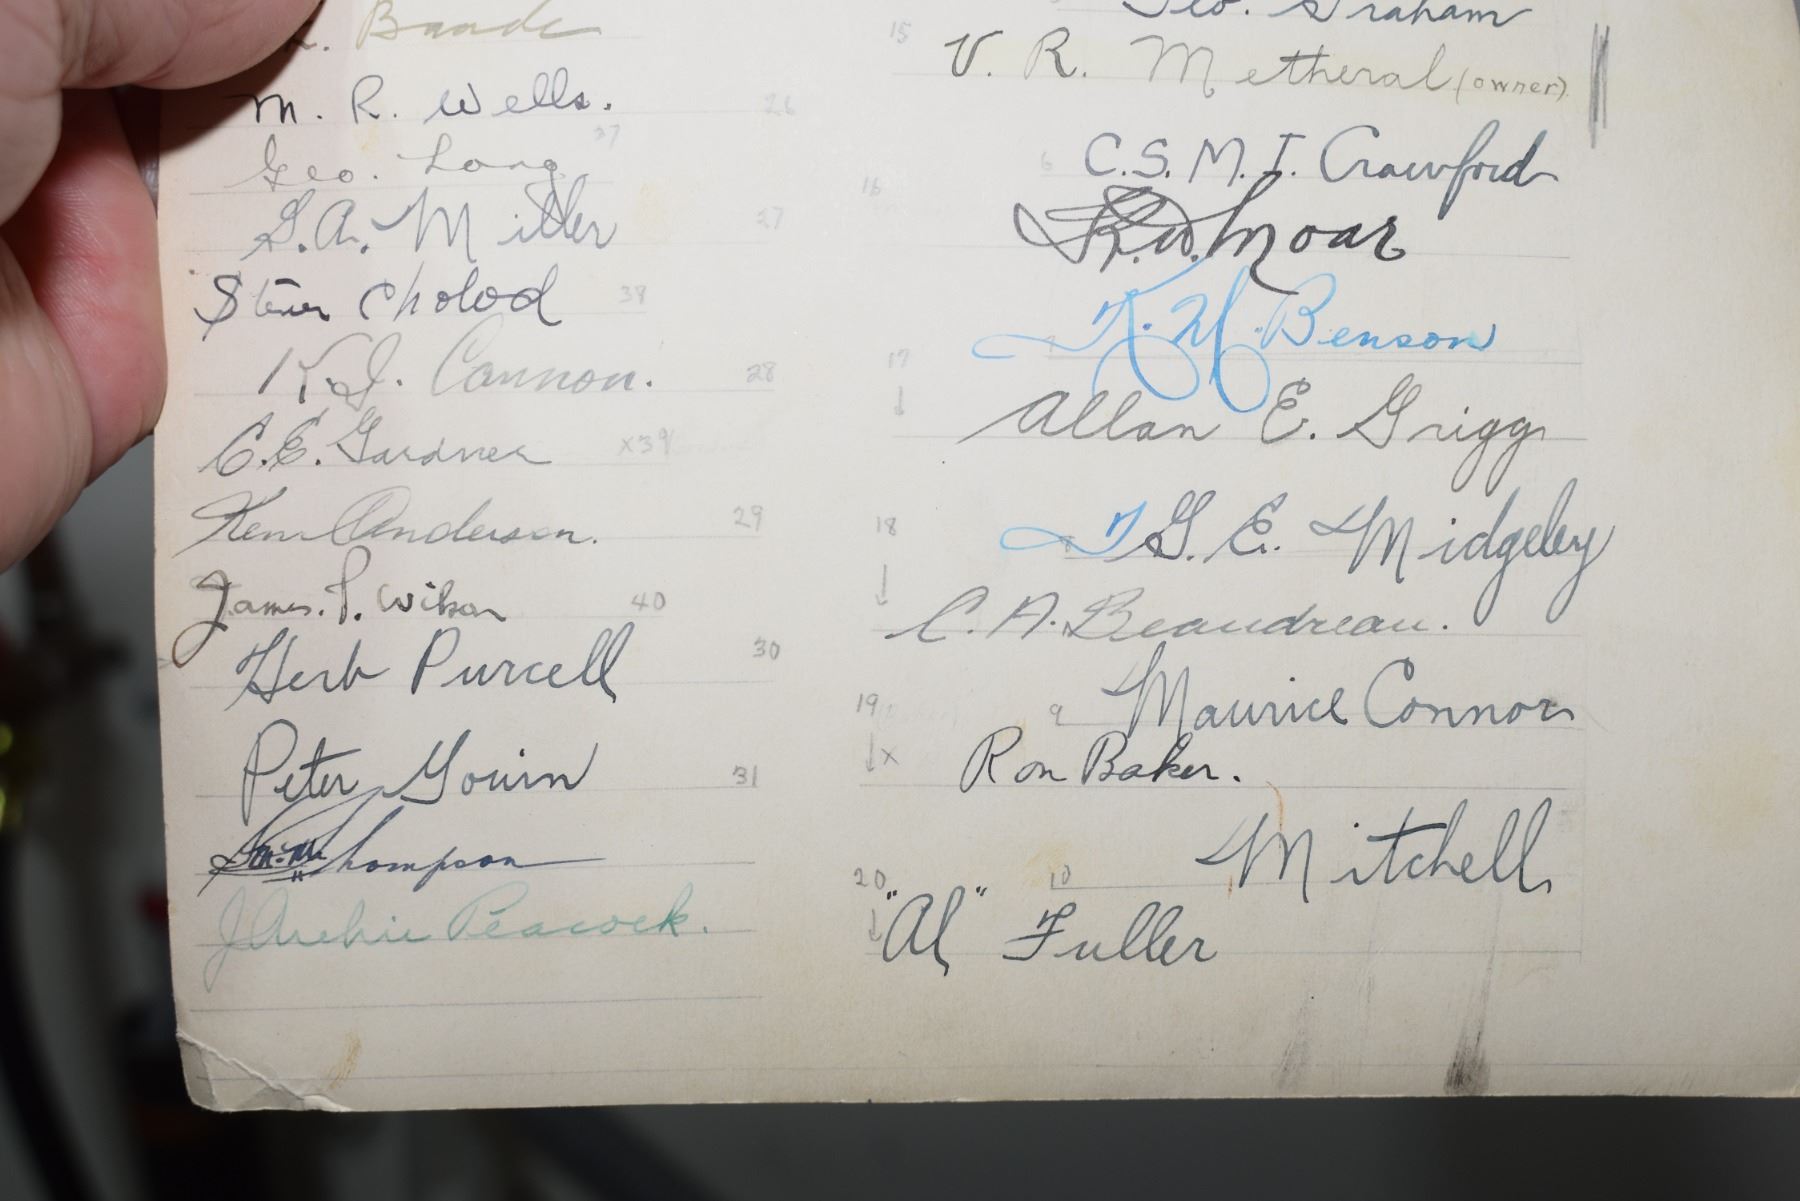 Baade
M. R. Wells. 26
37
Geo. Long
S. A. Miller 27
Steven Cholod 38
K. J. Cannon. 28
C. E. Gardner x39
Ken Anderson. 29
James. P. Wilson 40
Herb Purcell 30
Peter Gouin 31
Thompson
J Archie Peacock.
Geo. Graham
15 V. R. Metheral (owner)
6 C.S.M. I. Crawford
16 Moar
7 Benson
17 ↓ Allan E. Grigg
18 8 G. E. Midgeley
↓ C. A. Beaudreau.
19 9 Maurice Connor
↓x Ron Baker.
10 Mitchell
20 ↓ "Al" Fuller